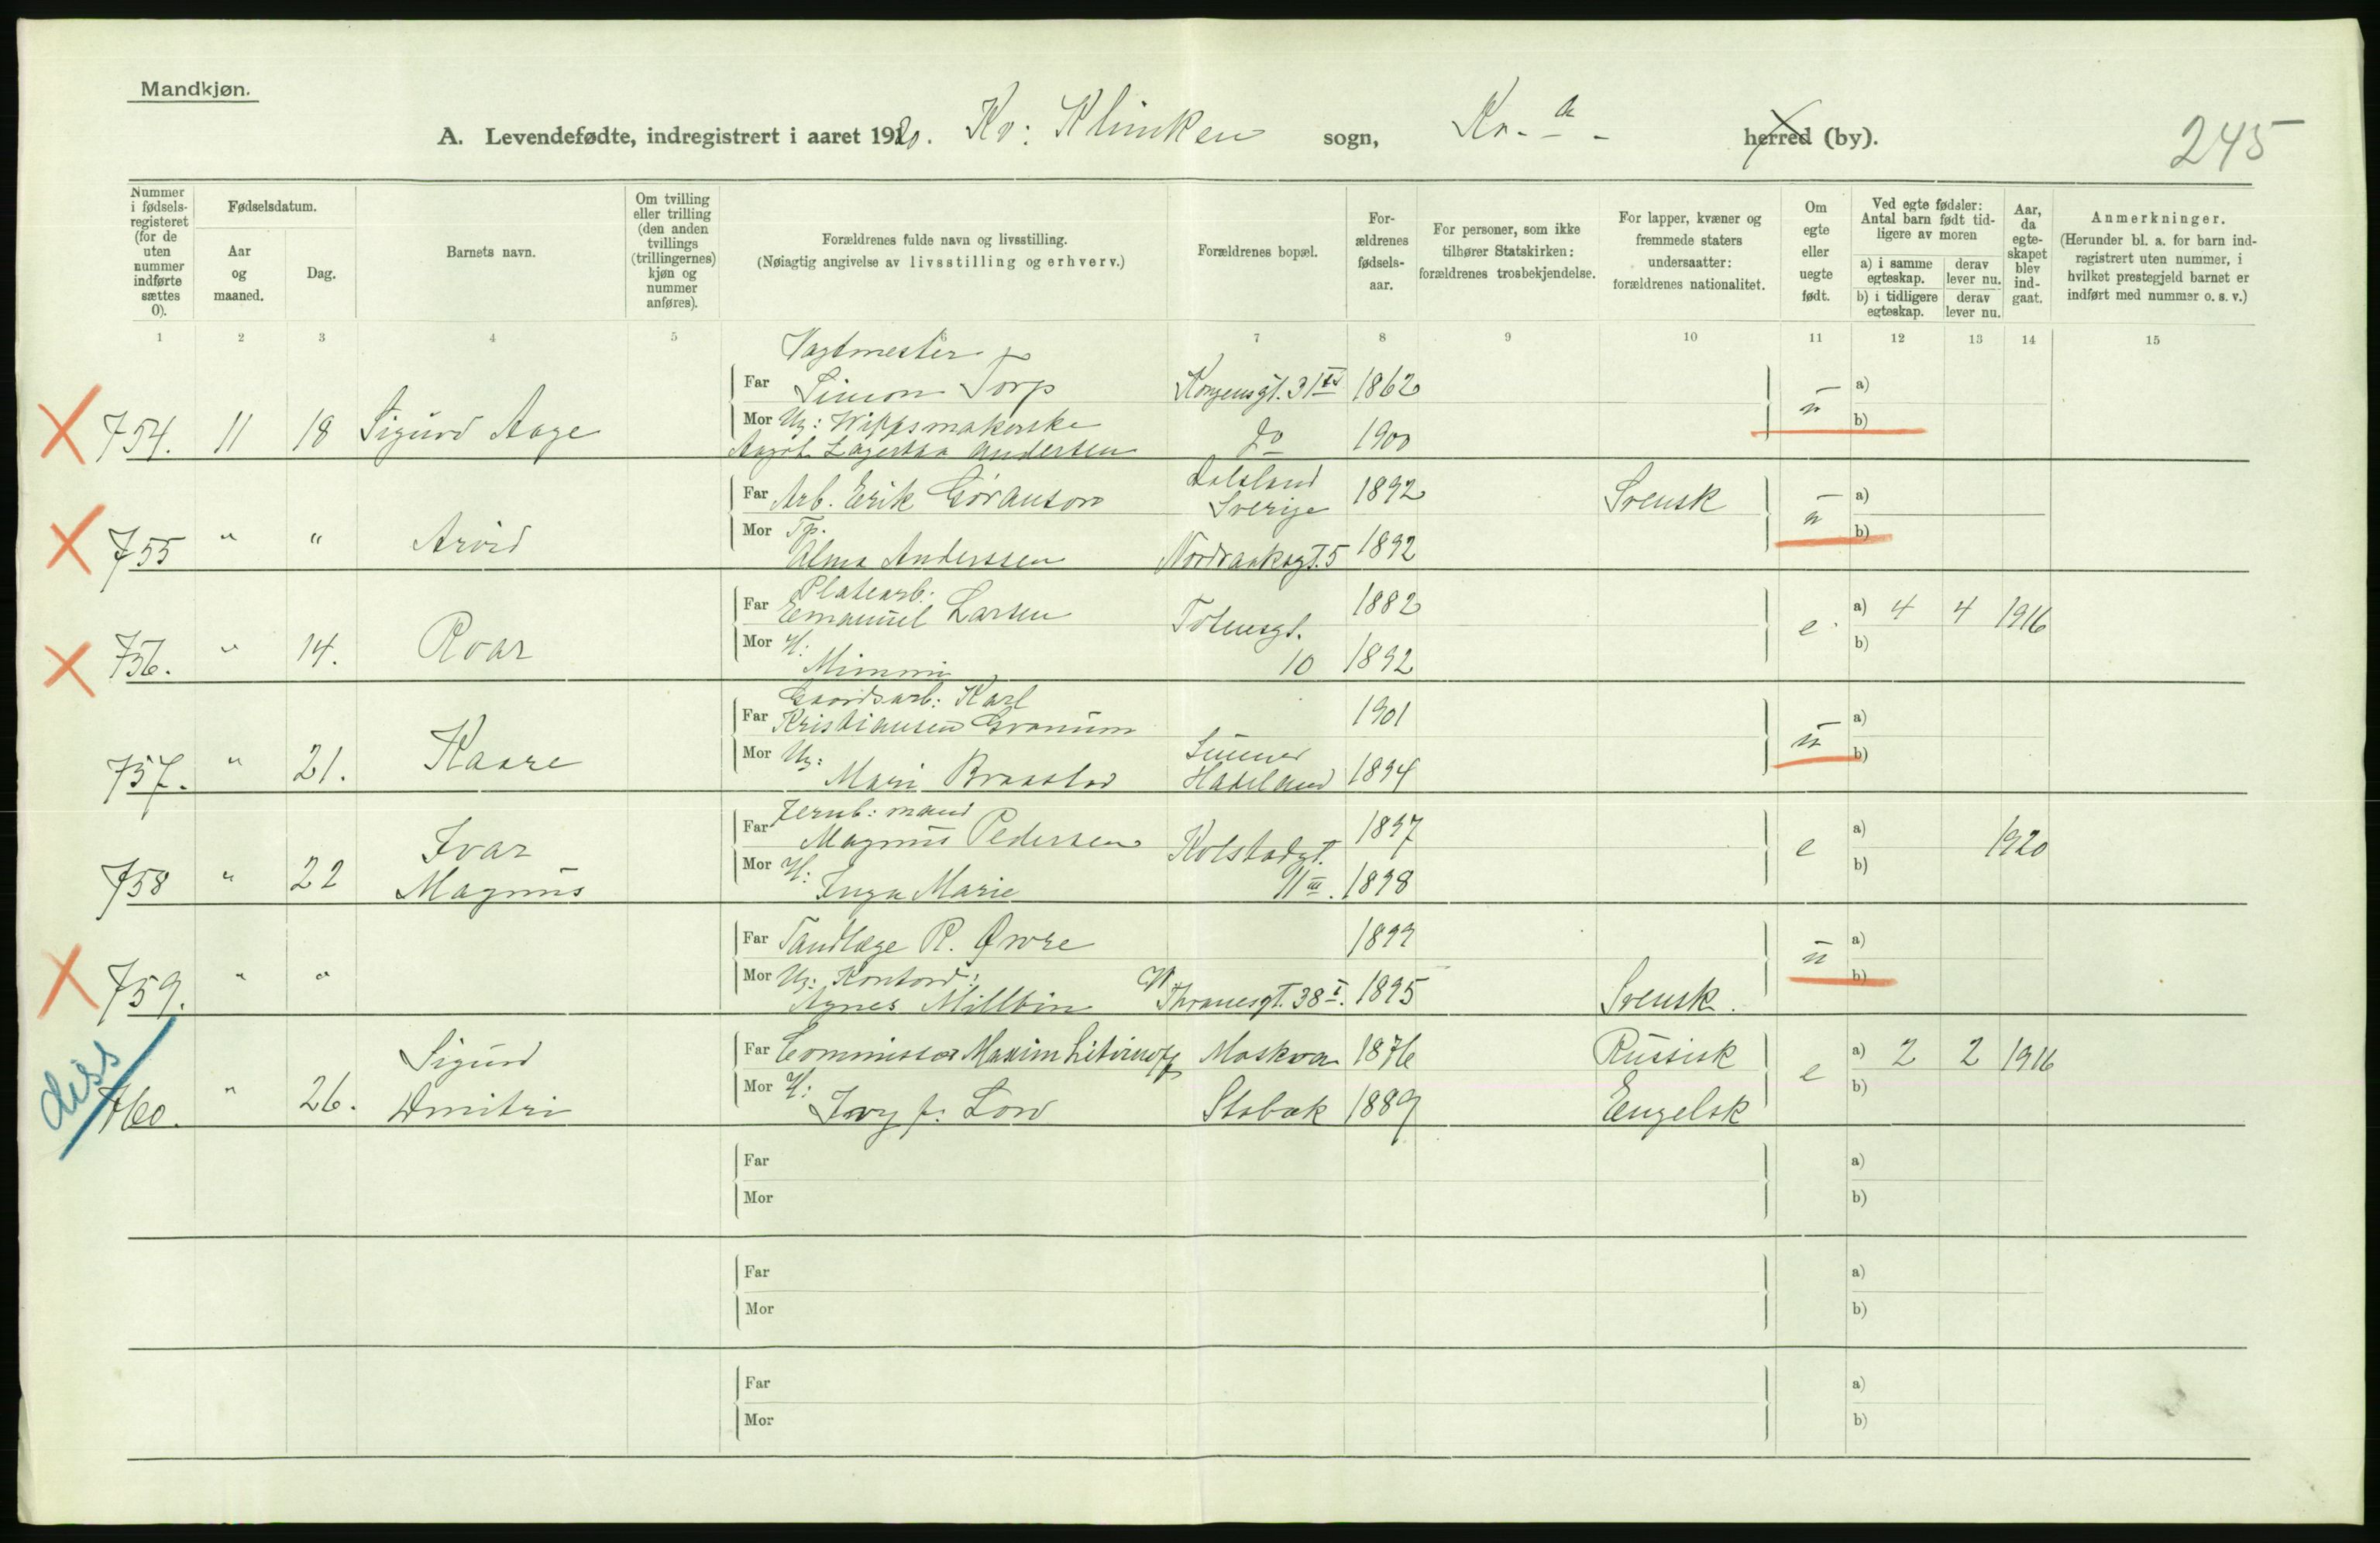 Mandkjøn.
A. Levendefødte, indregistrert i aaret 1920. Kv: Klinken sogn, Kr.a. herred (by).
245
Nummer i fødsels-registeret (for de uten nummer indførte sættes 0).
Fødselsdatum.
Aar og maaned.
Dag.
Barnets navn.
Om tvilling eller trilling (den anden tvillings (trillingernes) kjøn og nummer anføres).
Forældrenes fulde navn og livsstilling.
(Nøiagtig angivelse av livsstilling og erhverv.)
Forældrenes bopæl.
For-ældrenes fødsels-aar.
For personer, som ikke tilhører Statskirken: forældrenes trosbekjendelse.
For lapper, kvæner og fremmede staters undersaatter: forældrenes nationalitet.
Om egte eller uegte født.
Ved egte fødsler: Antal barn født tid-ligere av moren
a) i samme egteskap.
derav lever nu.
b) i tidligere egteskap.
derav lever nu.
Aar, da egte-skapet blev ind-gaat.
Anmerkninger.
(Herunder bl. a. for barn ind-registrert uten nummer, i hvilket prestegjeld barnet er indført med nummer o. s. v.)
1 2 3 4 5 6 7 8 9 10 11 12 13 14 15
Vagtmester
Far Simon Torp Kongensgt. 31 1862 a)
754. 11 18 Sigurd Aage Mor Ug: ū b)
Lagertha Andersen do 1900
Dalsland
Far Arb. Erik Göranson Sverige 1892 Svensk a)
755 " " Arvid Mor Tp. ū b)
Alma Anderssen Nordraaksgt. 5 1892
Platearb:
Far Emanuel Larsen Totensgt. 1882 a) 4 4 1916
756. " 14. Roar Mor H: e b)
Mimmi 10 1892
Gaardsarb: Karl
Far Kristiansen Granum 1901 a)
757. " 21. Kaare Mor Ug: ū b)
Mari Braastad Hadeland 1894
Jernb: mand
Far Magnus Pedersen Kolstadgt. 1897 a) 1920
758 " 22 Ivar Magnus Mor H: e b)
Inga Marie 11 III. 1898
Far Tandlæge R. Øvre 1899 a)
759. " " Mor Ug: Kontord: ū b)
Agnes Millbin Thranesgt. 38 I. 1895 Svensk.
Far Commissar Maxim Litvinoff Moskva 1876 Russisk a) 2 2 1916
diss
760. " 26. Sigurd Dmitri Mor H: e b)
Ivy f. Low Stabæk 1889 Engelsk
Far a)
Mor b)
Far a)
Mor b)
Far a)
Mor b)